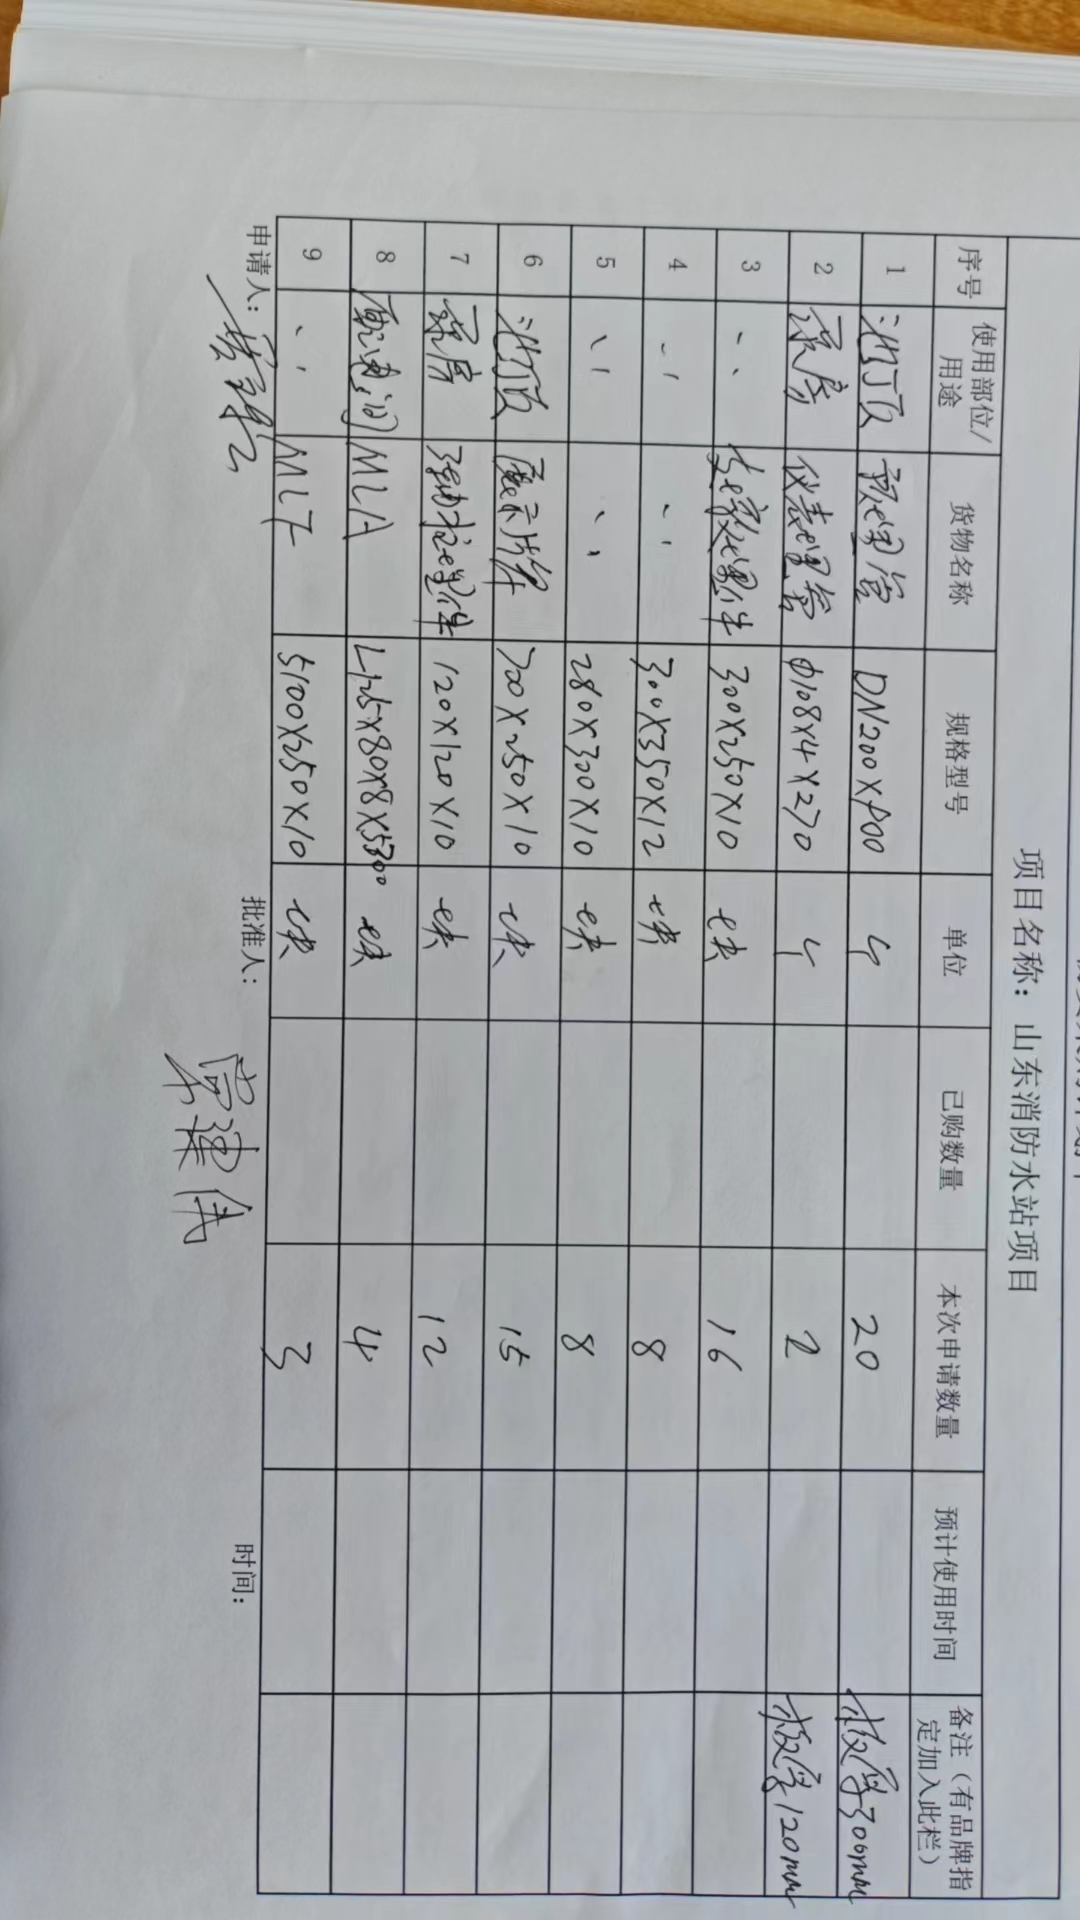 项目名称：山东消防水站项目
序号 使用部位/用途 货物名称 规格型号 单位 已购数量 本次申请数量 预计使用时间 备注（有品牌指定加入此栏）
1 池顶 预埋管 DN200X800 个 20 板厚300mm
2 泵房 仪表埋管 Φ108X4X270 个 2 板厚120mm
3 、、 支架埋件 300X250X10 块 16
4 、、 、、 300X350X12 块 8
5 、、 、、 280X300X10 块 8
6 池顶 展示牌 700X250X10 块 15
7 泵房 埋件 120X120X10 块 12
8 配电间 MLA L125X80X8X5300 块 4
9 、、 ML7 5100X250X10 块 3
申请人： 批准人： 时间：